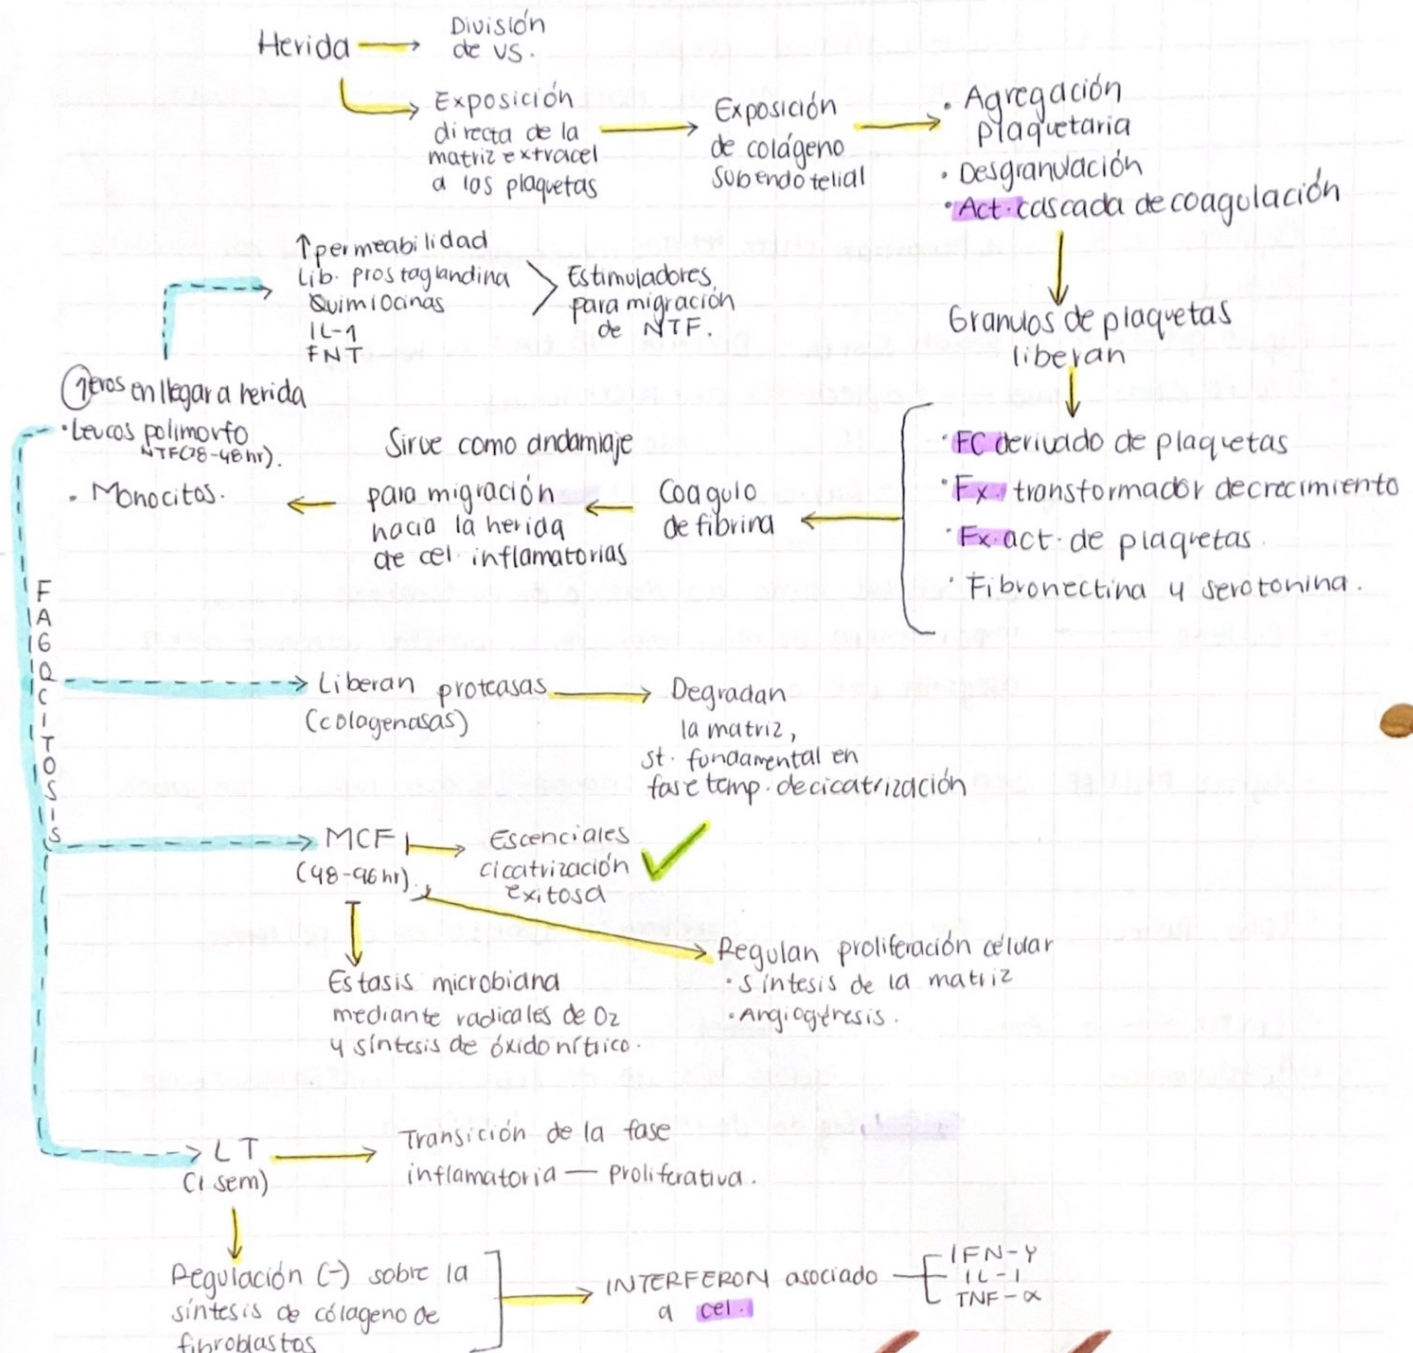 Herida
División
de VS.
Exposición
directa de la
matriz extracel
a las plaquetas
Exposición
de colágeno
subendotelial
· Agregación
plaquetaria
· Desgranulación
· Act. cascada de coagulación
Granulos de plaquetas
liberan
· FC derivado de plaquetas
· Fx. transformador de crecimiento
· Fx. act. de plaquetas.
· Fibronectina y serotonina.
Coagulo
de fibrina
Sirve como andamiaje
para migración
hacia la herida
de cel. inflamatorias
1eros en llegar a herida
· Leucos polimorfo
NTF(28-48 hr).
· Monocitos.
↑permeabilidad
Lib. prostaglandina
Quimiocinas
IL-1
FNT
Estimuladores
para migración
de NTF.
FAGOCITOSIS
Liberan proteasas
(colagenasas)
Degradan
la matriz,
st. fundamental en
fase temp. de cicatrización
MCF
(48-96 hr).
Escenciales
cicatrización
exitosa
Regulan proliferación célular
· síntesis de la matriz
· Angiogénesis.
Estasis microbiana
mediante radicales de O2
y síntesis de óxido nítrico.
LT
(1 sem)
Transición de la fase
inflamatoria — proliferativa.
Regulación (-) sobre la
síntesis de cólageno de
fibroblastos
INTERFERON asociado
a cel.
IFN-γ
IL-1
TNF-α